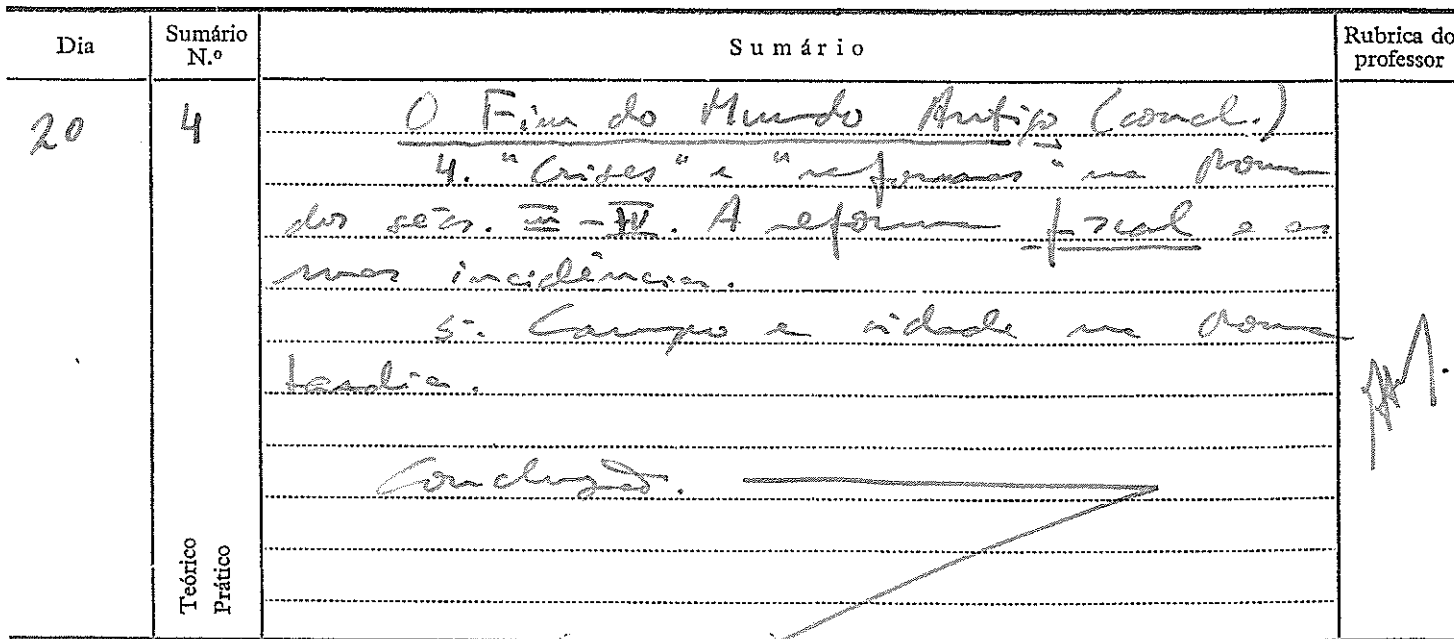 Dia
Sumário N.º
Sumário
Rubrica do professor
20
4
O Fim do Mundo Antigo (concl.)
4. "Crises" e "reformas" na Roma
dos sécs. III - IV. A reforma fiscal e as
suas incidências.
5. Campo e cidade na Roma
tardia.
Conclusão.
Teórico
Prático